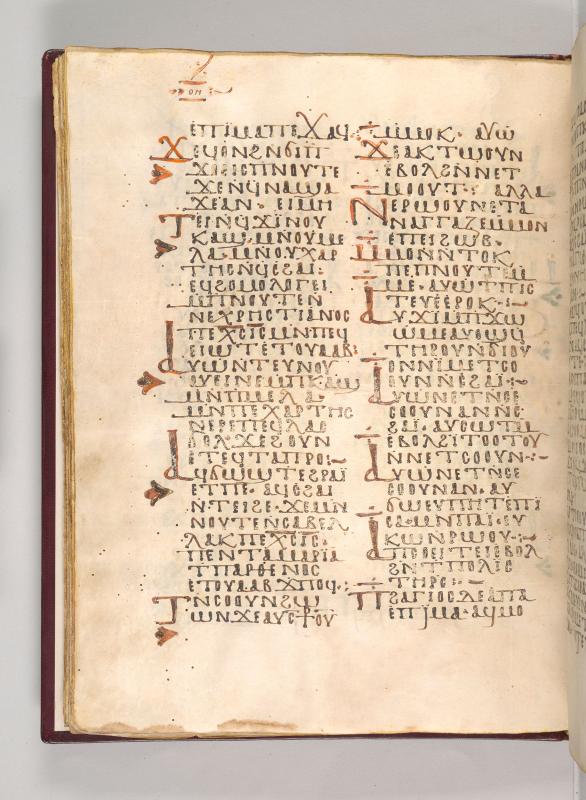 ⲟⲏ
ⲉⲡⲓⲙⲁⲡⲉⲭⲁϥ
ϫⲉϥⲟⲛϩⲛϭⲓⲡ
ⲭⲟⲉⲓⲥⲡⲛⲟⲩⲧⲉ
ϫⲉⲛϥⲛⲁϣⲁ
ϫⲉⲁⲛ· ⲉⲓⲙⲏ
ⲧⲉⲓⲛϥϫⲓⲛⲟⲩ
ⲕⲁϣ· ⲙⲛⲟⲩⲙⲉ
ⲗⲁ· ⲙⲛⲟⲩⲭⲁⲣ
ⲧⲏⲥⲛϥⲥϩⲁⲓ:
ⲉϥϩⲟⲙⲟⲗⲟⲅⲉⲓ
ⲙⲡⲛⲟⲩⲧⲉⲛ
ⲛⲉⲭⲣⲏⲥⲧⲓⲁⲛⲟⲥ
ⲡⲉⲭⲥⲓⲥⲙⲛⲡⲉϥ
ⲉⲓⲱⲧⲉⲧⲟⲩⲁⲁⲃ:
ⲁⲩⲱⲛⲧⲉⲩⲛⲟⲩ
ⲁⲩⲉⲓⲛⲉⲙⲡⲕⲁϣ
ⲙⲛⲡⲙⲉⲗⲁ·
ⲙⲛⲡⲉⲭⲁⲣⲧⲏⲥ
ⲛⲉⲣⲉⲡⲉϥⲗⲁⲥ
ⲃⲟⲗϫⲉϩⲟⲩⲛ
ⲉⲧⲉϥⲧⲁⲡⲣⲟ:-
ⲁϥϭⲱϣⲧⲉϩⲣⲁⲓ
ⲉⲧⲡⲉ· ⲁϥⲥϩⲁⲓ
ⲛⲧⲉⲓϩⲉ· ϫⲉⲙⲛ
ⲛⲟⲩⲧⲉⲛⲥⲁⲃⲉⲗ
ⲗⲁⲕⲡⲉⲭⲥⲓⲥ·
ⲡⲉⲛⲧⲁⲙⲁⲣⲓⲁ
ⲧⲡⲁⲣⲑⲉⲛⲟⲥ
ⲉⲧⲟⲩⲁⲁⲃϫⲡⲟϥ:
ⲧⲛⲥⲟⲟⲩⲛϩⲱ
ⲱⲛ· ϫⲉⲁⲩⲥ⳨ⲟⲩ
ⲙⲙⲟⲕ· ⲁⲩⲱ
ϫⲉⲁⲕⲧⲱⲟⲩⲛ
ⲉⲃⲟⲗϩⲛⲛⲉⲧ
ⲙⲟⲟⲩⲧ: ⲁⲗⲗⲁ
ⲛⲉⲣⲱⲟⲩⲛⲉⲧⲁ
ⲛⲁⲅⲅⲁⲍⲉⲙⲙⲟⲛ
ⲉⲡⲉⲓϩⲱⲃ·
ⲙⲙⲟⲛⲛⲧⲟⲕ
ⲡⲉⲡⲛⲟⲩⲧⲉⲙ
ⲙⲉ· ⲁⲩⲱⲧⲡⲓⲥ
ⲧⲉⲩⲉⲉⲣⲟⲕ:-
ⲁⲩϫⲓⲙⲡϫⲱ
ⲱⲙⲉⲁⲩⲟϣϥ
ⲧⲏⲣⲟⲩⲛϭⲓⲟⲩ
ⲟⲛⲛⲓⲙⲉⲧⲥⲟ
ⲟⲩⲛⲛⲥϩⲁⲓ:-
ⲁⲩⲱⲛⲉⲧⲛⲥⲉ
ⲥⲟⲟⲩⲛⲁⲛⲛⲥ
ϩⲁⲓ· ⲁⲩⲥⲱⲧⲙ
ⲉⲃⲟⲗϩⲓⲧⲟⲟⲧⲟⲩ
ⲛⲛⲉⲧⲥⲟⲟⲩⲛ:-
ⲁⲩⲱⲛⲉⲧⲛⲥⲉ
ⲥⲟⲟⲩⲛⲁⲛ· ⲁⲩ
ϭⲱⲉⲩⲡⲏⲧⲉⲡⲓ
ⲥⲁ· ⲙⲛⲡⲁⲓ· ⲉⲩ
ⲕⲱⲛⲣⲱⲟⲩ:-
ⲁⲡⲥⲟⲉⲓⲧⲉⲓⲉⲃⲟⲗ
ϩⲛⲧⲡⲟⲗⲓⲥ
ⲧⲏⲣⲥ:-
ⲡϩⲁⲅⲓⲟⲥⲇⲉⲁⲡⲁ
ⲉⲡⲓⲙⲁ· ⲁϥⲙⲟ